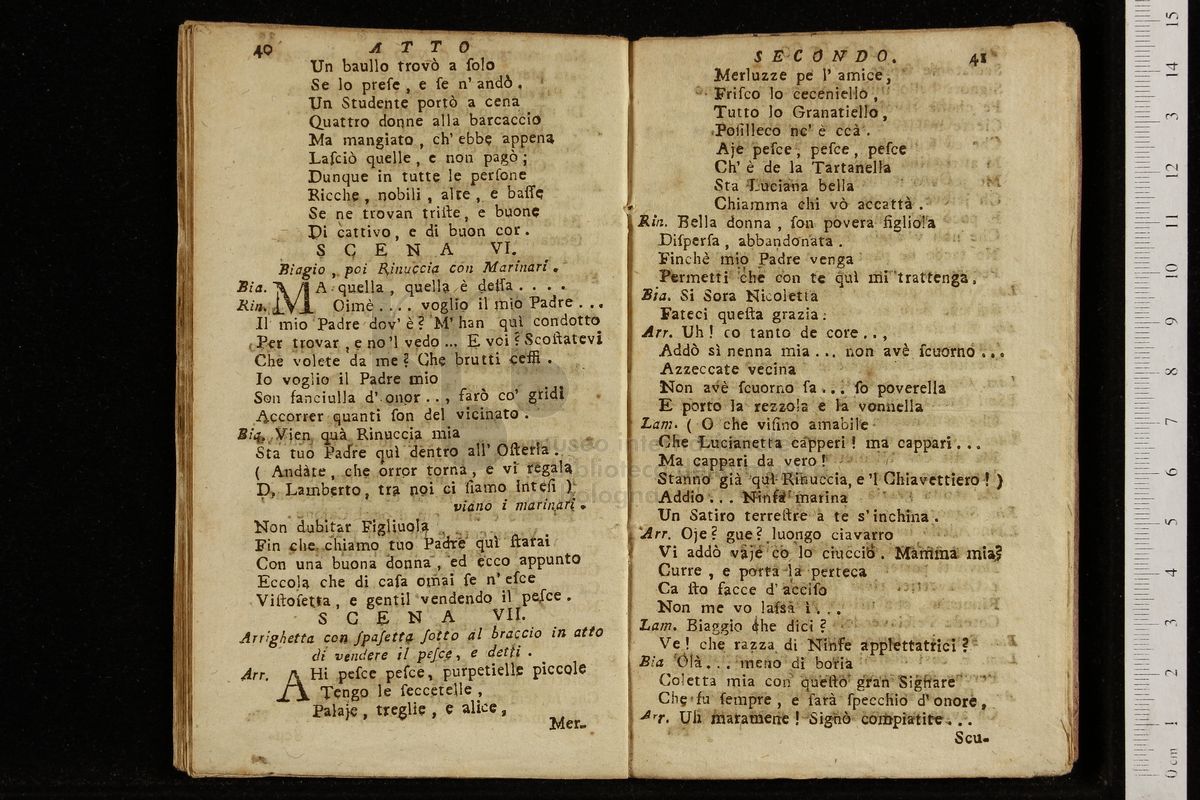 40 ATTO
Un baullo trovò a ſolo
Se lo preſe, e ſe n' andò.
Un Studente portò a cena
Quattro donne alla barcaccio
Ma mangiato, ch' ebbe appena
Laſciò quelle, e non pagò;
Dunque in tutte le perſone
Ricche, nobili, alte, e baſſe
Se ne trovan triſte, e buone
Di cattivo, e di buon cor.
SCENA VI.
Biagio, poi Rinuccia con Marinari.
Bia. MA quella, quella è deſſa....
Rin. Oimè.... voglio il mio Padre...
Il mio Padre dov' è? M' han quì condotto
Per trovar, e no'l vedo... E voi? Scoſtatevi
Che volete da me? Che brutti ceffi.
Io voglio il Padre mio
Son fanciulla d' onor.., farò co' gridi
Accorrer quanti ſon del vicinato.
Bia. Vien quà Rinuccia mia
Sta tuo Padre quì dentro all' Oſteria.
( Andàte, che orror torna, e vi regala
D. Lamberto, tra noi ci ſiamo Inteſi )
viano i marinari.
Non dubitar Figliuola
Fin che chiamo tuo Padre quì ſtarai
Con una buona donna, ed ecco appunto
Eccola che di caſa omai ſe n' eſce
Viſtoſetta, e gentil vendendo il peſce.
SCENA VII.
Arrighetta con ſpaſetta ſotto al braccio in atto
di vendere il peſce, e detti.
Arr. AHi peſce peſce, purpetielle piccole
Tengo le ſeccetelle,
Palaje, treglie, e alice,
Mer-
SECONDO. 41
Merluzze pe l' amice,
Friſco lo ceceniello,
Tutto lo Granatiello,
Poſilleco nc' è ccà.
Aje peſce, peſce, peſce
Ch' è de la Tartanella
Sta Luciana bella
Chiamma chi vò accattà.
Rin. Bella donna, ſon povera figliola
Diſperſa, abbandonata.
Finchè mio Padre venga
Permetti che con te quì mi trattenga.
Bia. Si Sora Nicoletta
Fateci queſta grazia:
Arr. Uh! co tanto de core..,
Addò sì nenna mia... non avè ſcuorno...
Azzeccate vecina
Non avè ſcuorno ſa... ſo poverella
E porto la rezzola e la vonnella
Lam. ( O che viſino amabile
Che Lucianetta capperi! ma cappari...
Ma cappari da vero!
Stanno già quì Rinuccia, e 'l Chiavettiero! )
Addio... Ninfa marina
Un Satiro terreſtre a te s' inchina.
Arr. Oje? gue? luongo ciavarro
Vi addò vaje co lo ciucciò. Mamma mia?
Curre, e porta la perteca
Ca ſto facce d' acciſo
Non me vo laſsà ì...
Lam. Biaggio che dici?
Ve! che razza di Ninfe applettatrici?
Bia Olà... meno di boria
Coletta mia con queſto gran Signare
Che fu ſempre, e ſarà ſpecchio d' onore,
Arr. Uh maramene! Signò compiatite...
Scu-